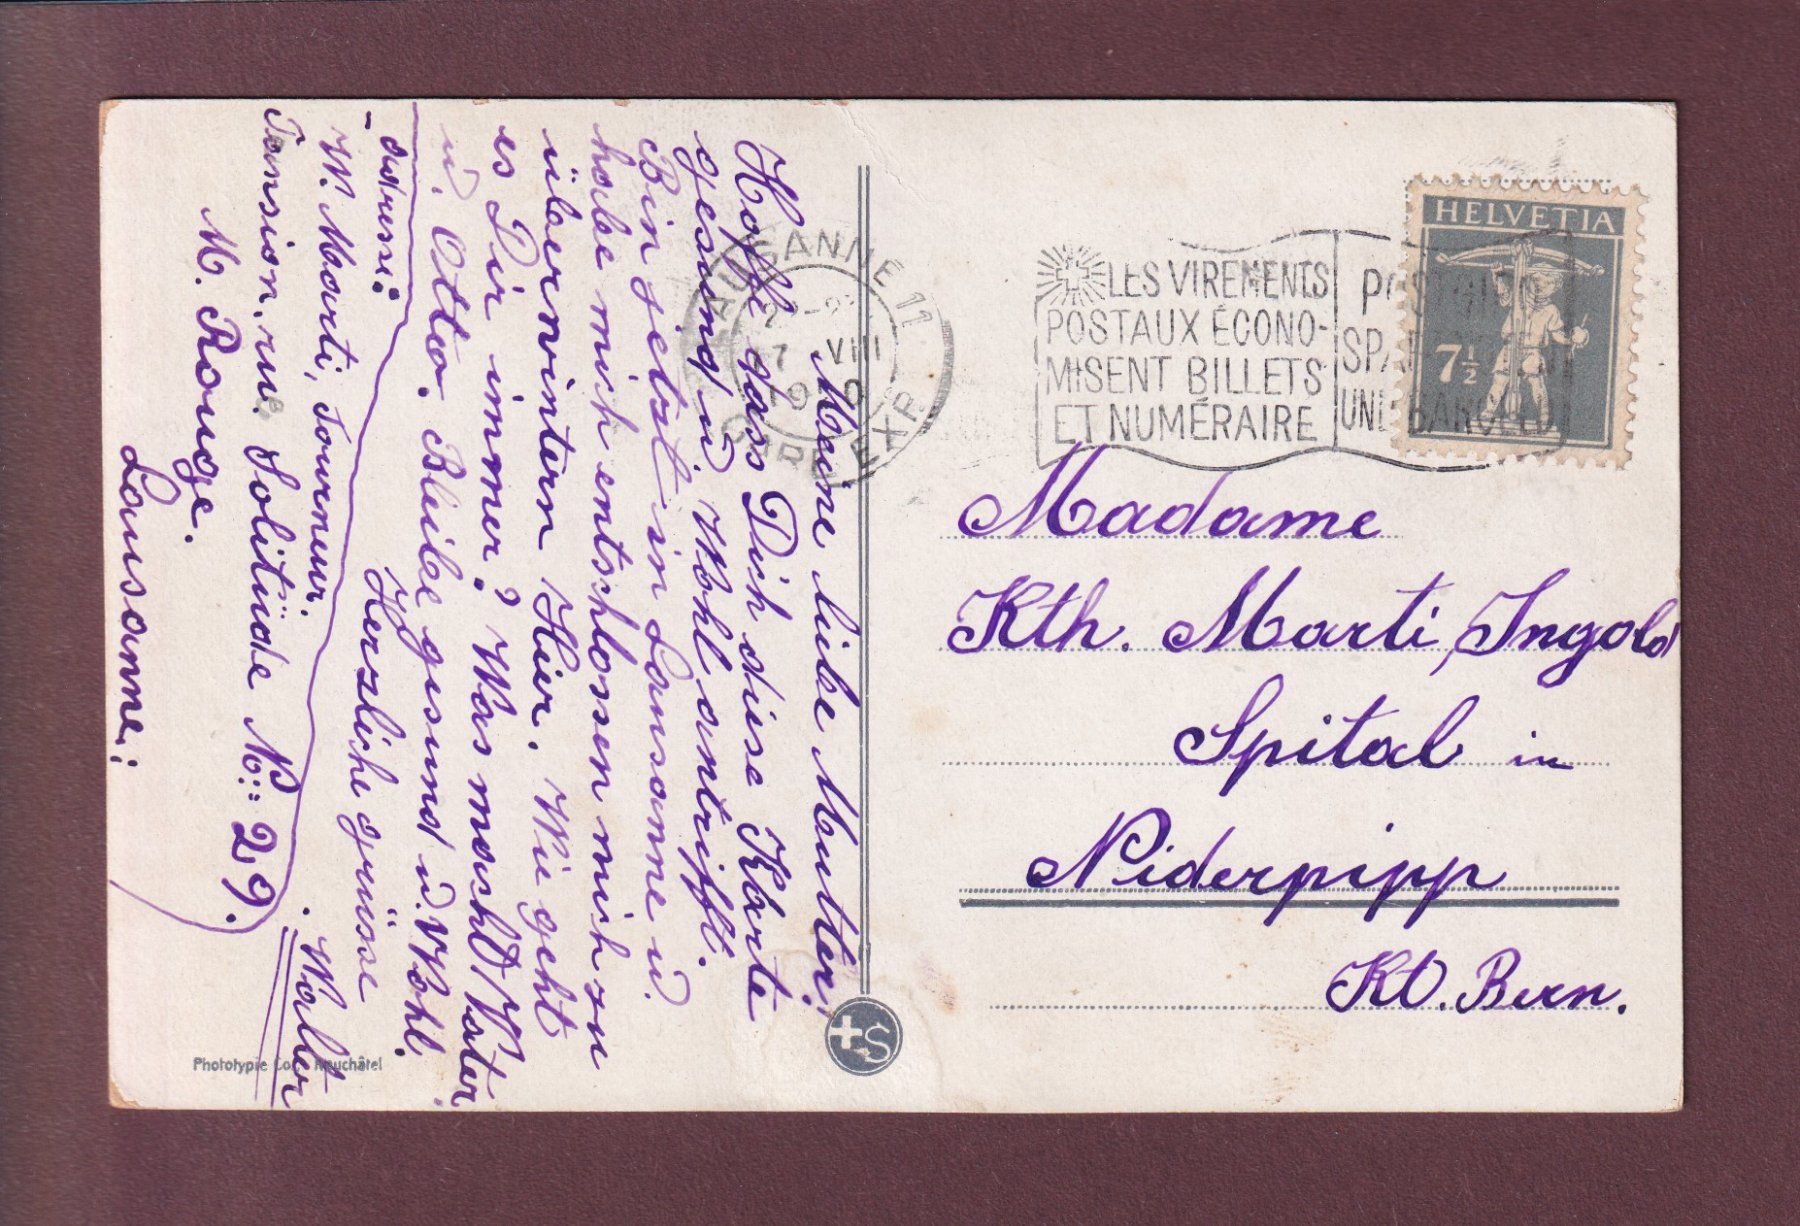 Meine liebe Mutter;
Hoffe dass Dich diese Karte
gesund u. Wohl antrifft.
Bin jetzt in Lausanne u.
habe mich entschlossen mich zu
überwintern Hier. Wie geht
es Dir immer? Was macht Vater
u. Otto. Bleibe gesund u. Wohl.
Herzliche grüsse
Walter
adresse:
W. Marti, Tourneur.
Pension. rue. Solitüde No: 29.
M. Rouge.
Lausanne:
Phototypie Co., Neuchâtel
+S
LAUSANNE 11
VIII
GARE EXP.
LES VIREMENTS
POSTAUX ÉCONO-
MISENT BILLETS
ET NUMÉRAIRE
HELVETIA
7½
Madame
Kth. Marti, Ingold
Spital in
Niderpipp
Kt. Bern.